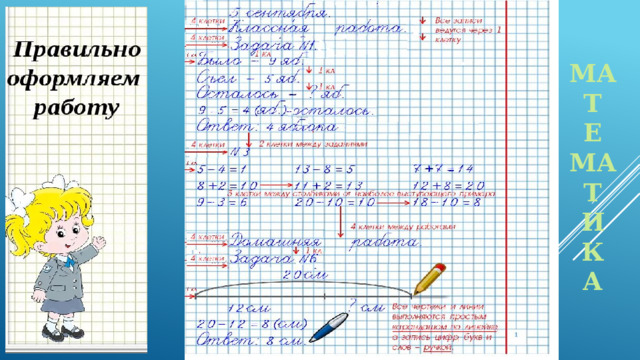 Правильно
оформляем
работу
5 сентября.
4 клетки Классная работа.
Все записи
ведутся через 1
клетку
4 клетки Задача №1.
1 кл
Было – 9 яб.
1 кл
Съел – 5 яб.
1 кл
Осталось – ? яб.
9 - 5 = 4 (яб.)-осталось.
Ответ: 4 яблока
2 клетки между заданиями
4 клетки № 3
1 кл
5 – 4 = 1 13 – 8 = 5 7 + 7 = 14
8 + 2 = 10 11 + 2 = 13 12 + 8 = 20
3 клетки между столбиками от наиболее выступающего примера
9 – 3 = 6 20 – 10 = 10 18 – 10 = 8
4 клетки между работами
4 клетки Домашняя работа.
1 кл
4 клетки Задача №6
20 см
12 см ? см
20 – 12 – 8 (см)
Ответ: 8 см.
Все чертежи и линии
выполняются простым
карандашом по линейке
а запись цифр, букв и
слов – ручкой
МА
Т
Е
МА
Т
И
К
А